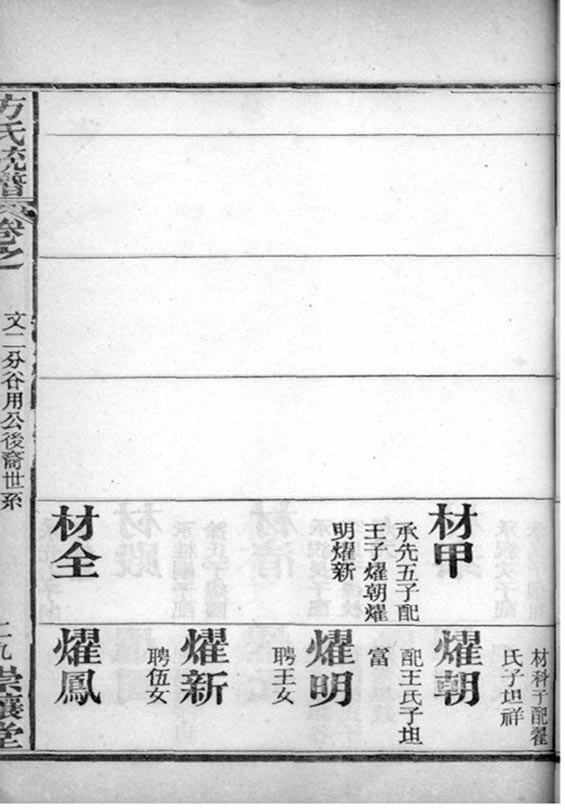 材甲
承先五子配
王子燿朝燿
明燿新
材全
材科子配翟
氏子坦祥
燿朝
配王氏子坦
富
燿明
聘王女
燿新
聘伍女
燿鳳
方氏統譜
卷之
文二分谷用公後裔世系
二九
崇讓堂